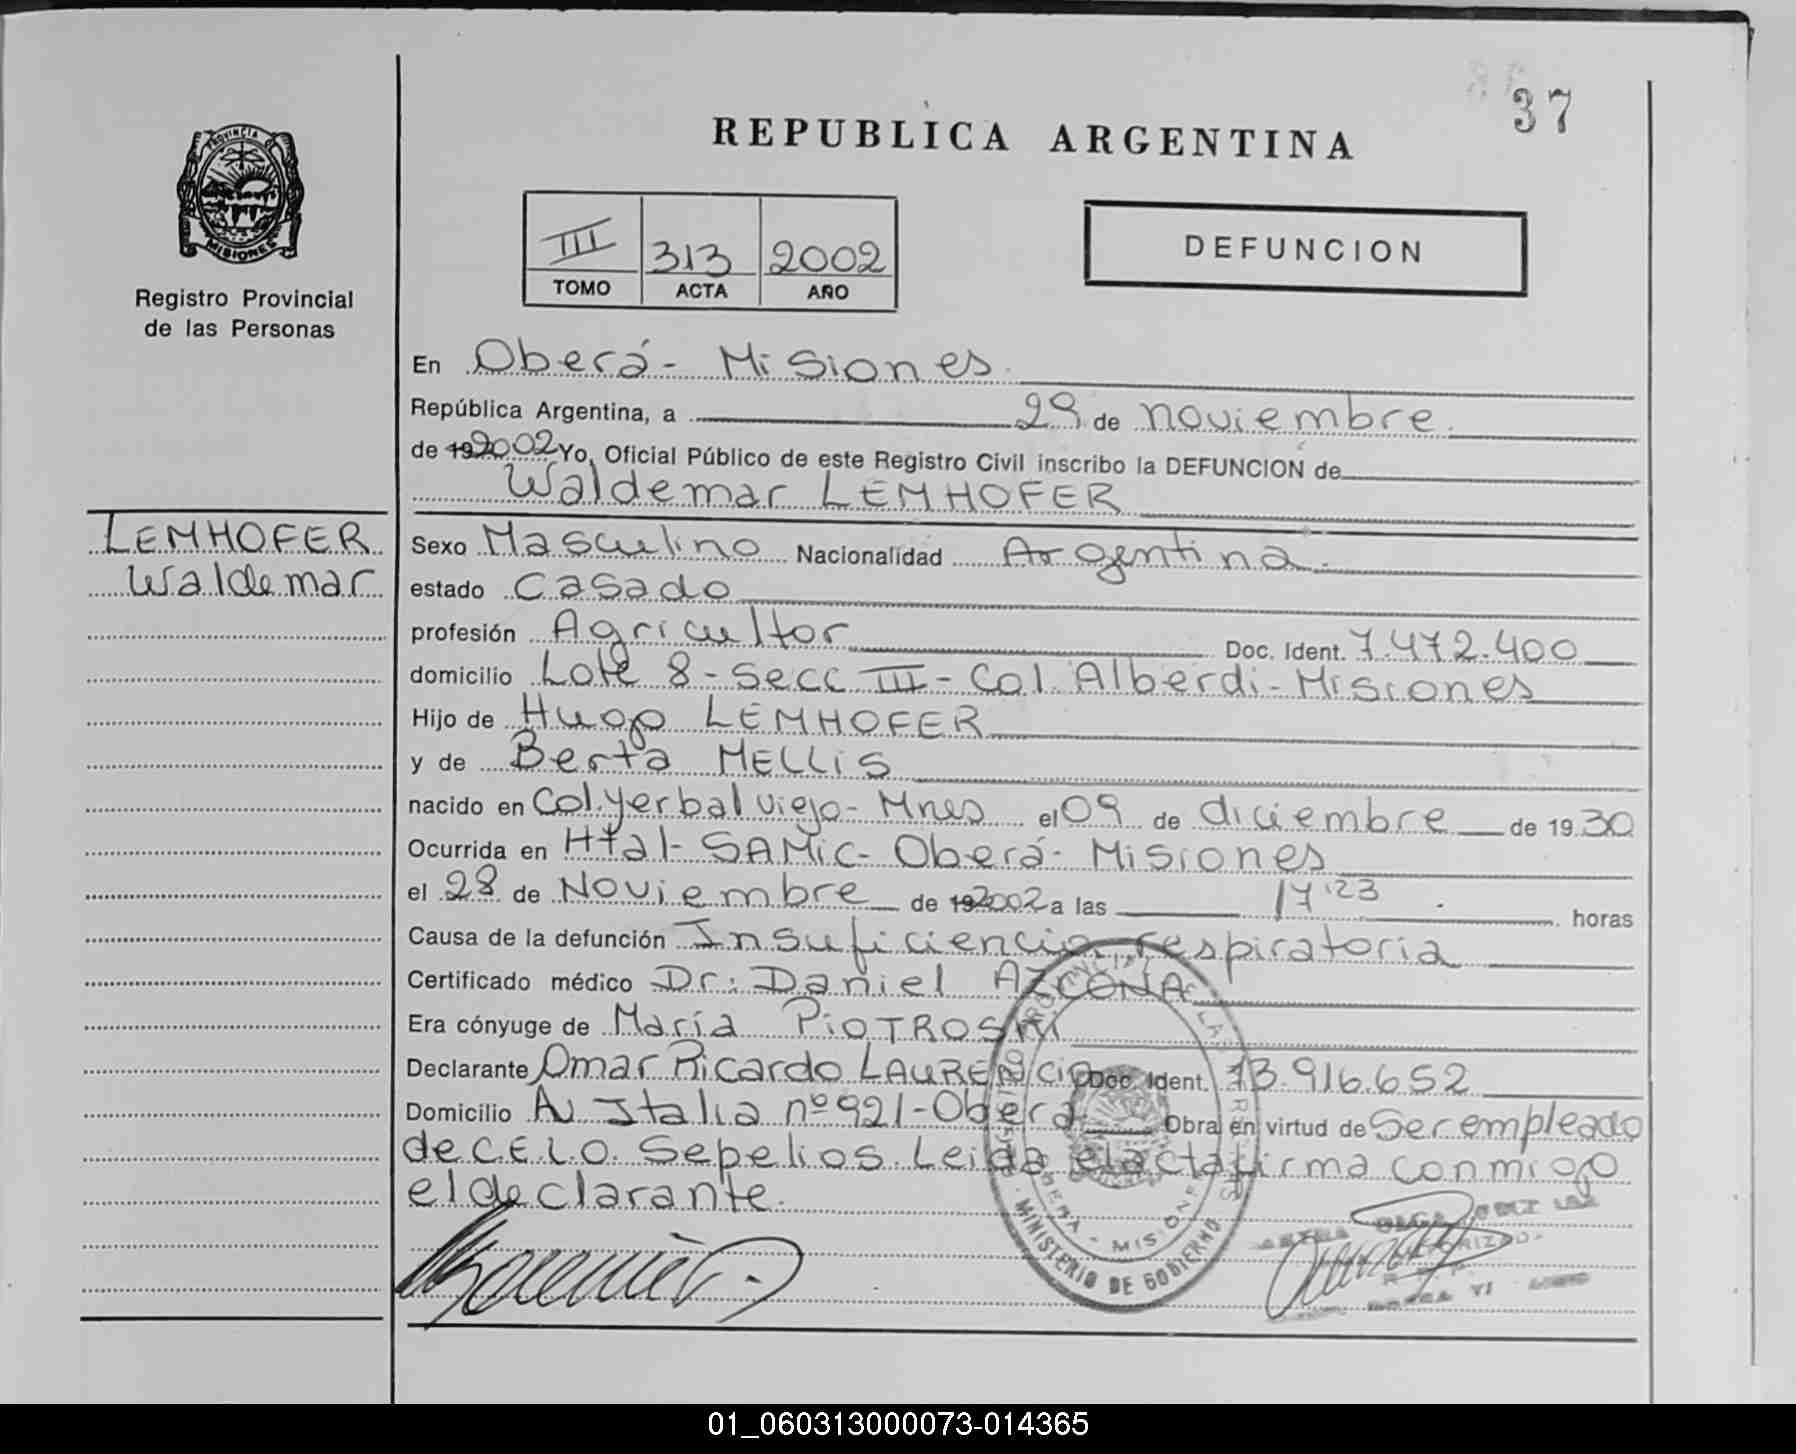 37
REPUBLICA ARGENTINA
PROVINCIA
MISIONES
Registro Provincial
de las Personas
III 313 2002
TOMO ACTA AÑO
DEFUNCION
En Oberá - Misiones
República Argentina, a 29 de noviembre
de 192002 Yo, Oficial Público de este Registro Civil inscribo la DEFUNCION de
Waldemar LEMHOFER
LEMHOFER
Waldemar
Sexo Masculino Nacionalidad Argentina
estado Casado
profesión Agricultor Doc. Ident. 7.472.400
domicilio Lote 8 - Secc III - Col. Alberdi - Misiones
Hijo de Hugo LEMHOFER
y de Berta MELLIS
nacido en Col. Yerbal viejo - Mnes el 09 de diciembre de 1930
Ocurrida en Htal - SAMIC - Oberá - Misiones
el 28 de Noviembre de 192002 a las 17:23 horas
Causa de la defunción Insuficiencia respiratoria
Certificado médico Dr: Daniel AZCONA
Era cónyuge de María
Declarante Omar Ricardo LAURENCIO Doc. Ident. 13.916.652
Domicilio Av Italia nº 921 - Oberá Obra en virtud de Ser empleado
de C.E.L.O. Sepelios. Leida el acta firma conmigo
el declarante.
MINISTERIO DE GOBIERNO
MISIONES
01_060313000073-014365